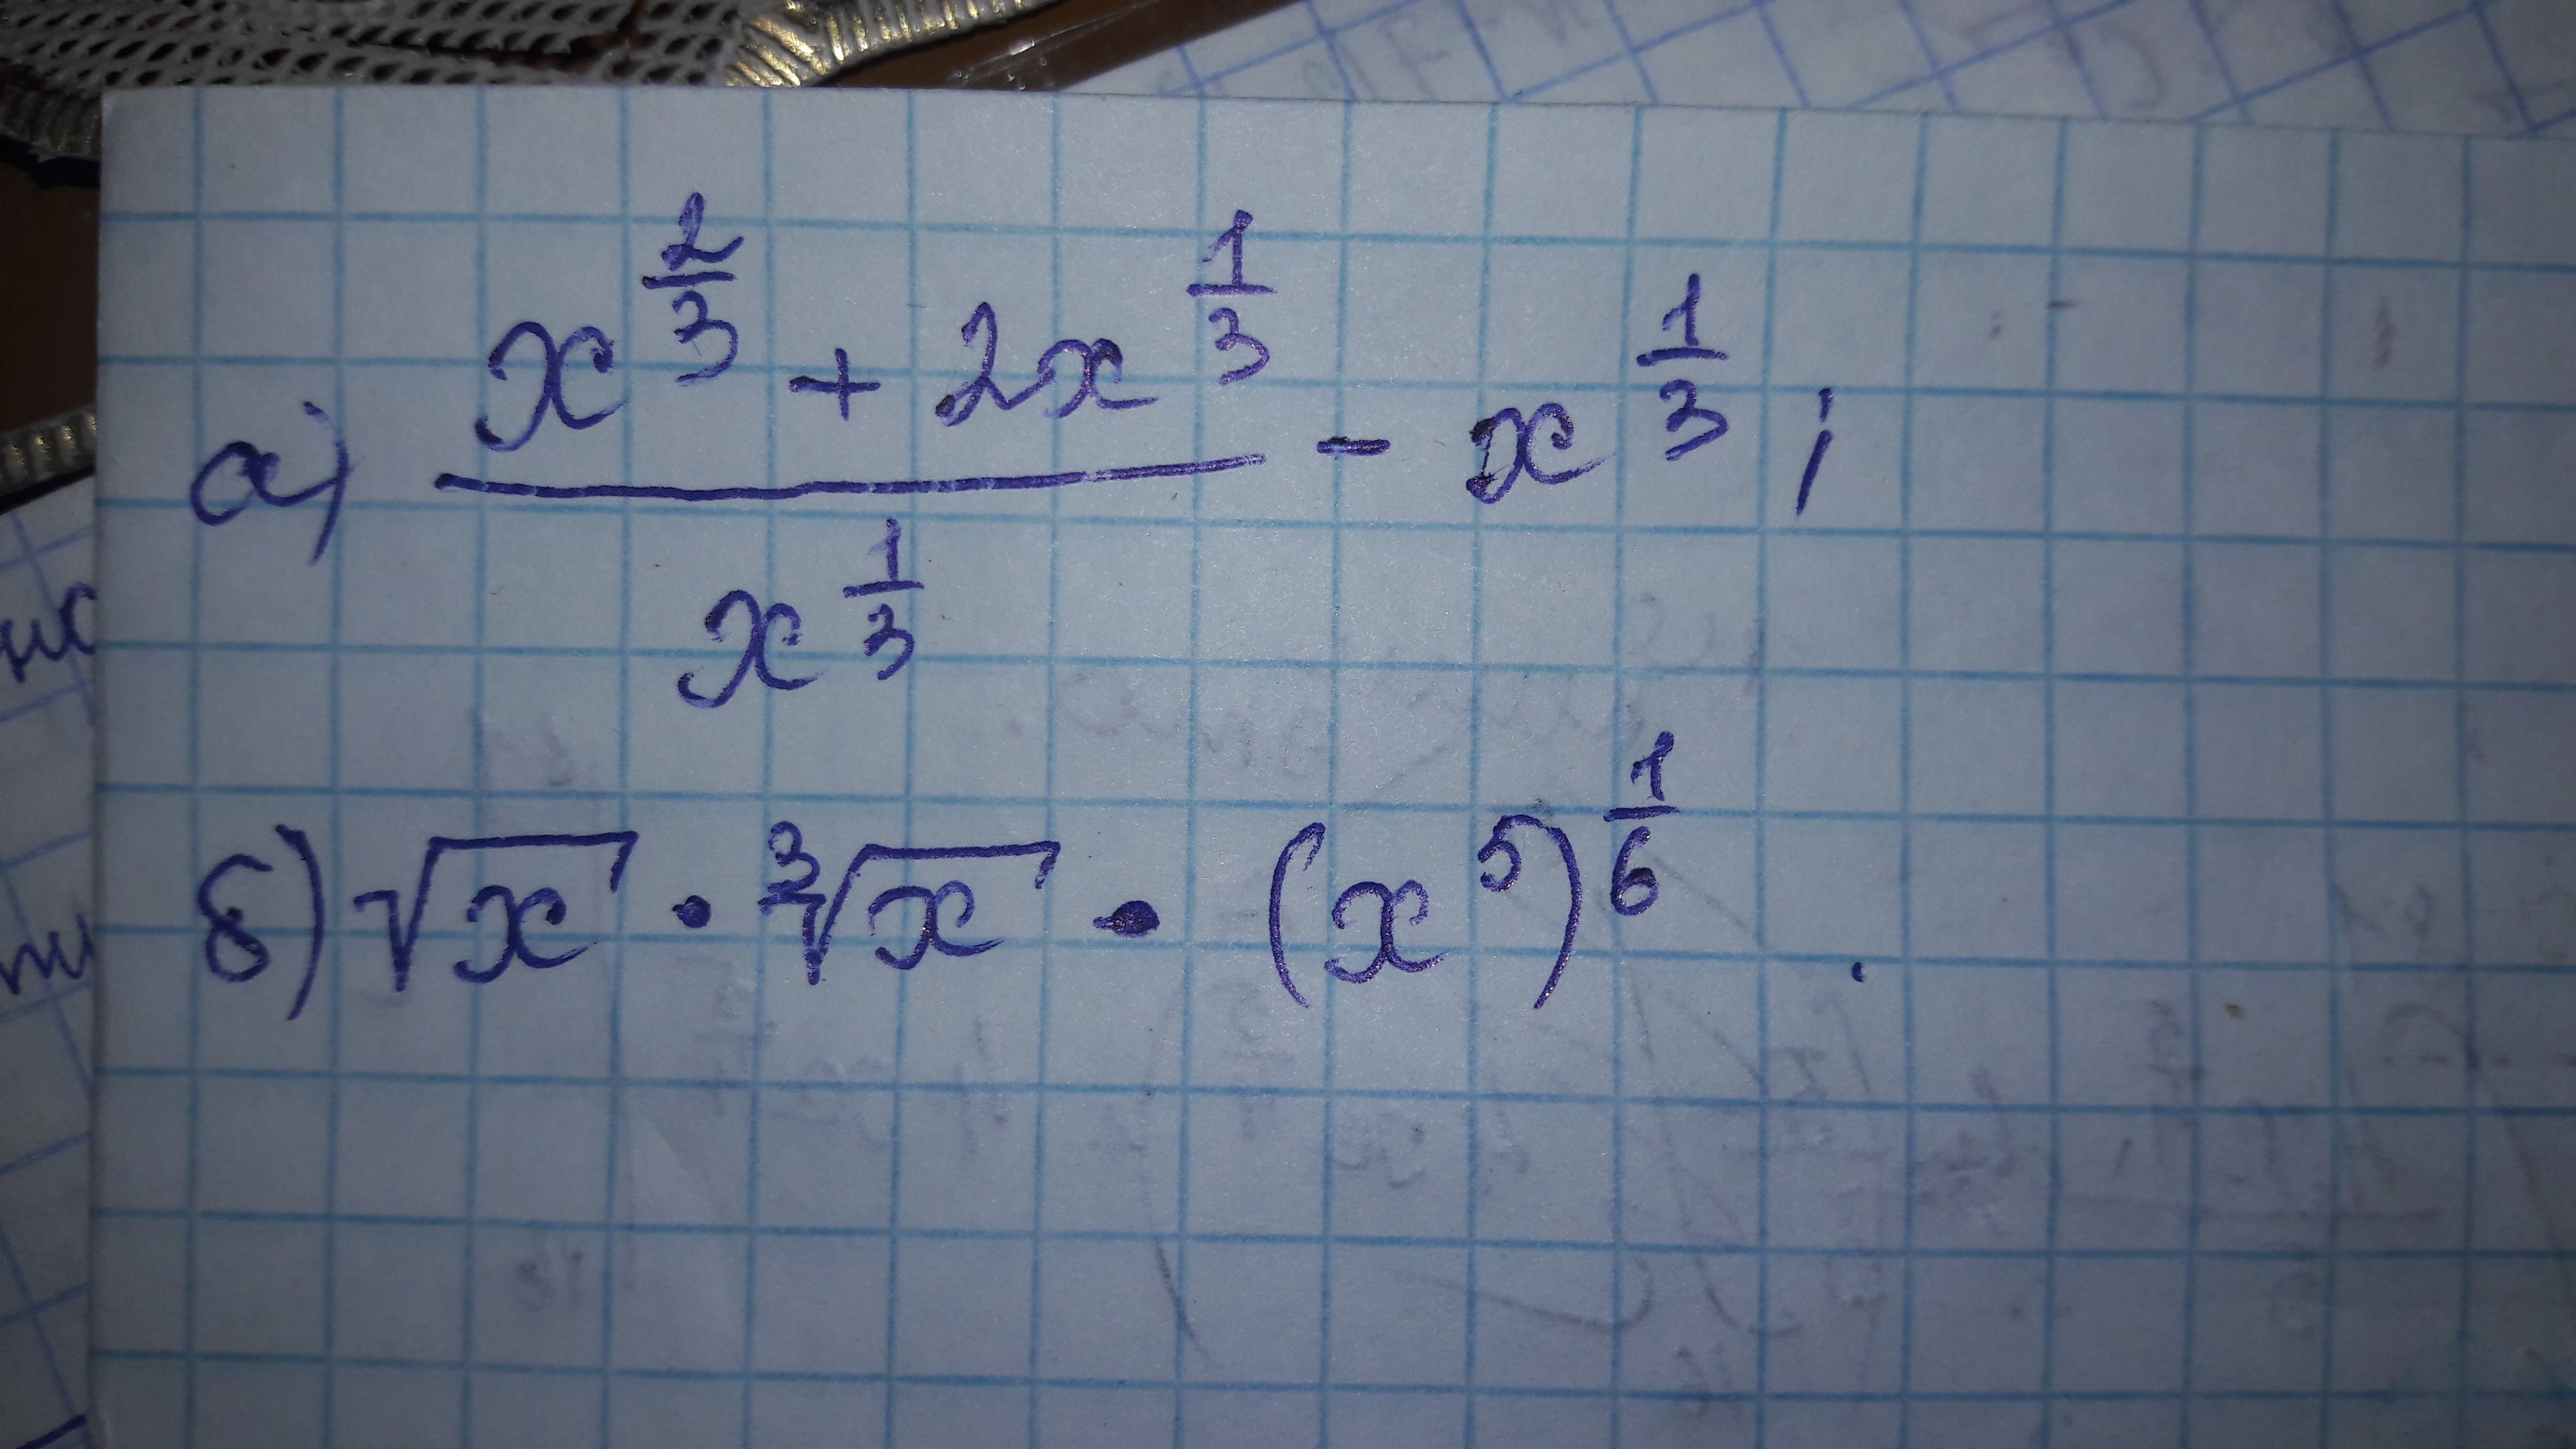 а) (x^(2/3) + 2x^(1/3)) / x^(1/3) - x^(1/3);
б) √x · ∛x · (x^5)^(1/6).